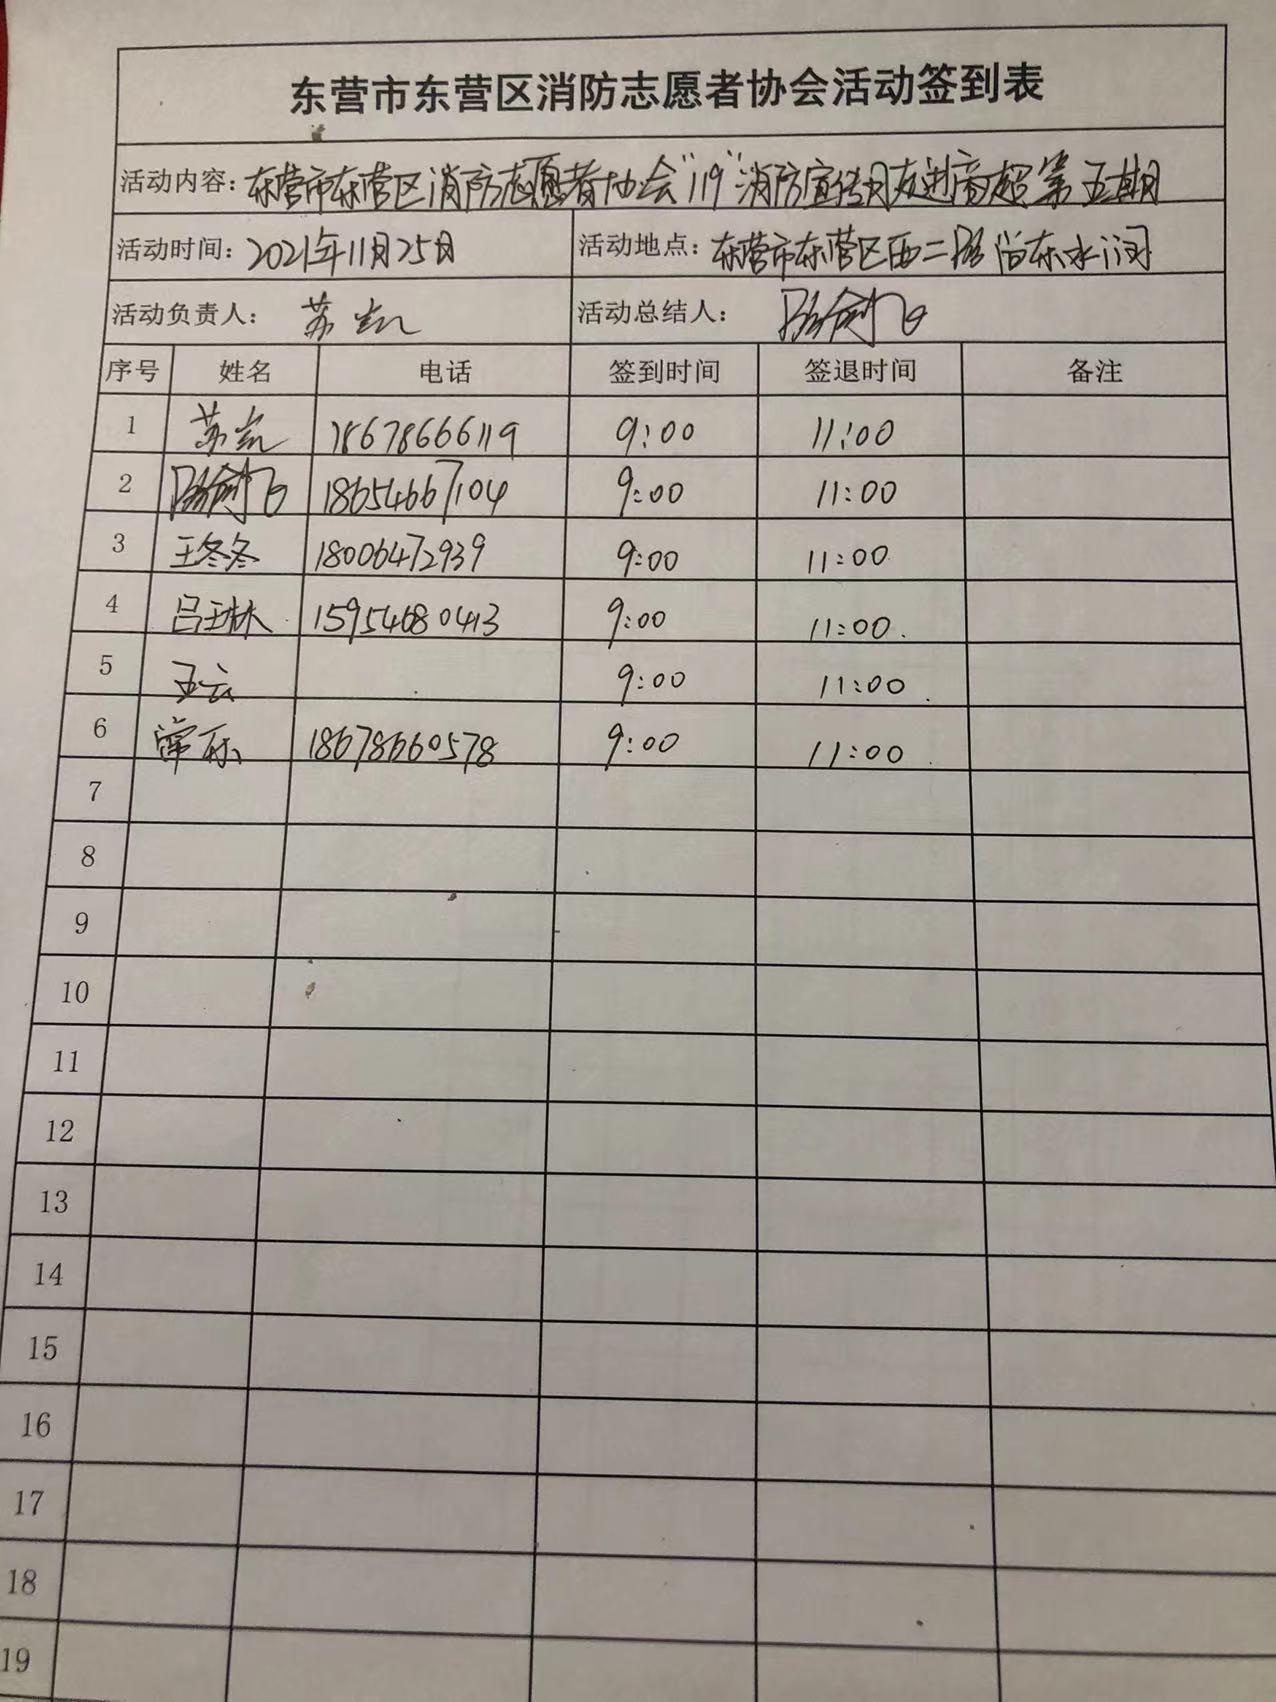 东营市东营区消防志愿者协会活动签到表
活动内容：东营市东营区消防志愿者协会"119"消防宣传月走进商超第五期
活动时间：2021年11月25日 活动地点：东营市东营区西二路尚东水润
活动负责人：苏岩 活动总结人：
序号 姓名 电话 签到时间 签退时间 备注
1 苏岩 18678666119 9:00 11:00
2 18654667104 9:00 11:00
3 王冬冬 18006472939 9:00 11:00
4 吕玉林 15954680413 9:00 11:00
5 王云 9:00 11:00
6 18678660578 9:00 11:00
7
8
9
10
11
12
13
14
15
16
17
18
19